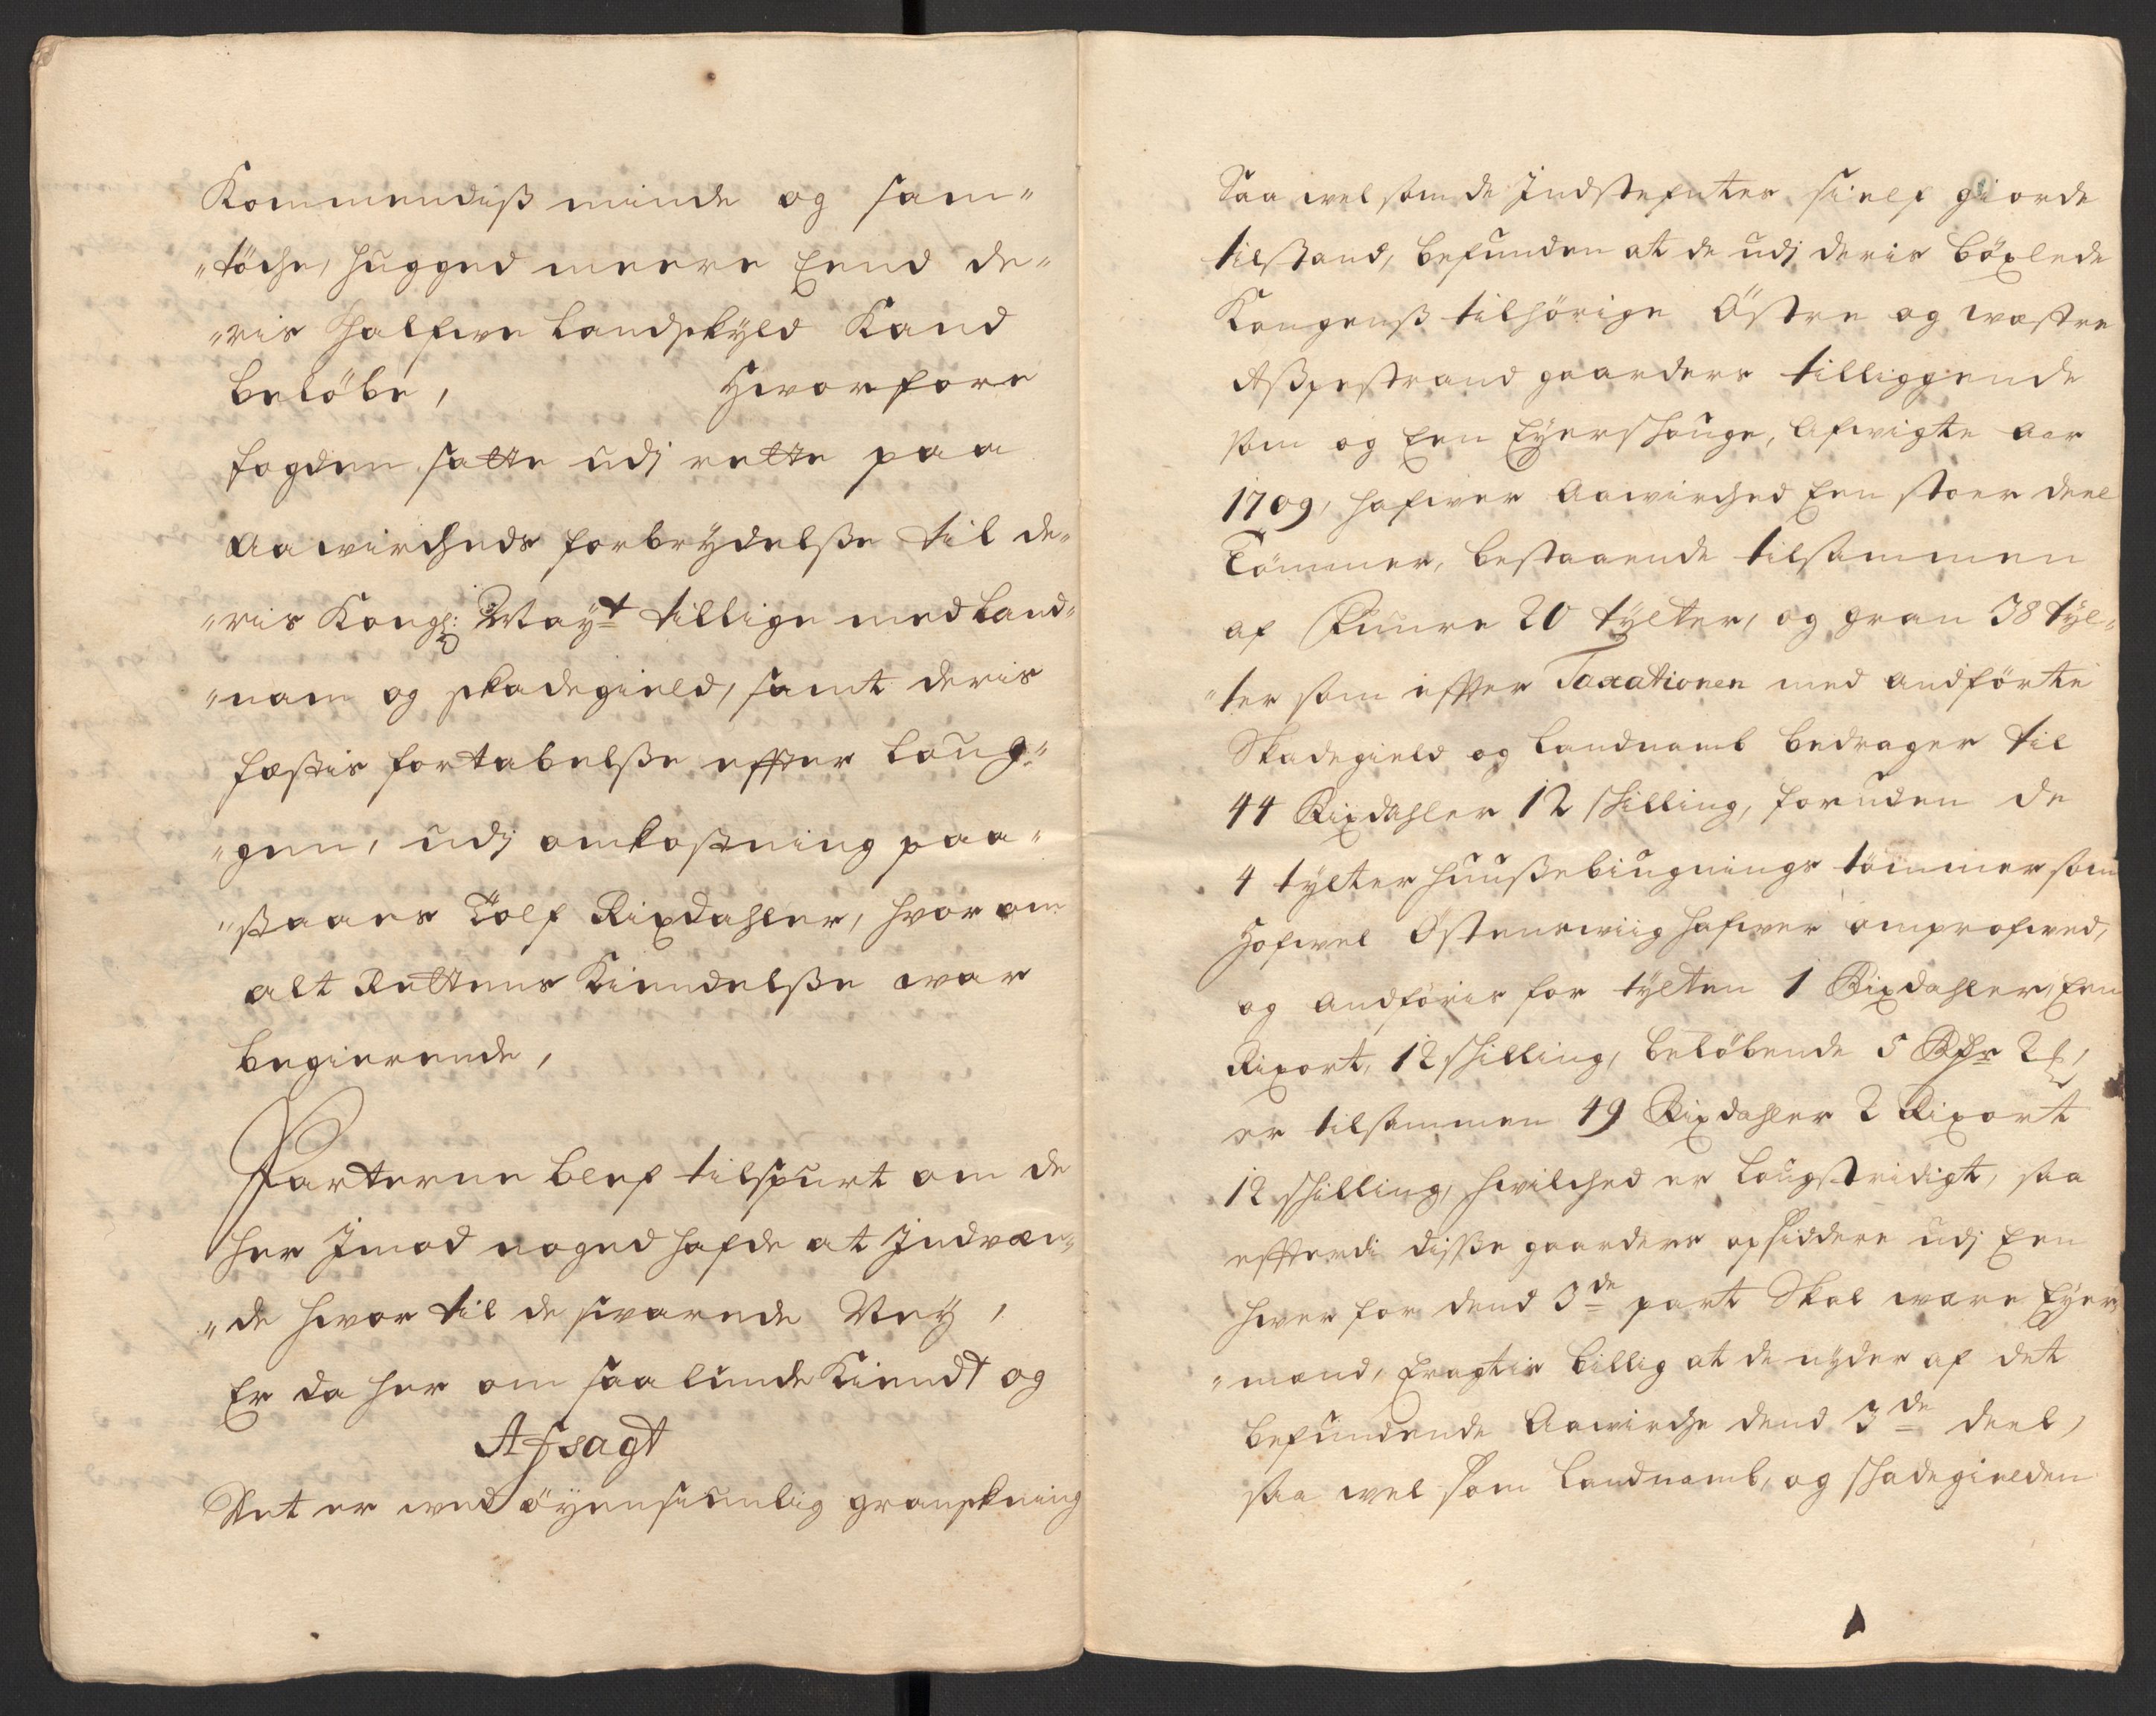 Kommendiß minde og sam-
"töche, hugged meere End de-
"ris Halfve Landskyld Kand
beløbe, Hvorfore
fogden satte udj rette paa
Aavircheds forbrydelße til de-
"ris Kongl: Mayt tillige med Land-
"nam og skadegield, samt deris
fæstis fortabelße effter Loug-
"gen, udj omkostning paa-
"staaes Tolf Rixdahler, hvor om
alt Rettens Kiendelße var
begierende,
Parterne blef tilspurt om de
her Jmod noged hafde at Indven-
"de hvor til de svarede Ney,
Er da her om saalunde Kiendt og
Afsagt
Det er ved öyensiunlig granskning
Saa vel som de Indstefnter sielf giorde
tilstand, befunden at de udj deris böxlede
Kongenß tilhörige Östre og vestre
Aßpestrand gaarders tilliggende
som og Een Eyers houge, Afvigte Aar
1709, hafver Aavirched Een stoer deel
Tömmer, bestaaende tilsammen
af Fuure 20 tylter, og gran 38 tyl-
"ter som effter Taxationen med andförte
Skadegield og Landnamb bedrager til
44 Rixdahler 12 skilling, foruden de
4 tylter huußebiugnings tömmer som
Hofvel Östensviig hafver omprofved,
og andföris for tylten 1 Rixdahler, Een
Rixort, 12 skilling, belöbende 5 Rdr 2 ß,
er tilsammen 49 Rixdahler 2 Rixort
12 skilling, hvilched er Lougstridigt, saa
effterdi diße gaarders opsiddere udj Een
hver for dend 3de part Skal være Eyer-
"mend, Eragtis billig at de nyder af det
befundende Aavirche dend 3de deel,
saa vel som Landnamb, og skadegielden